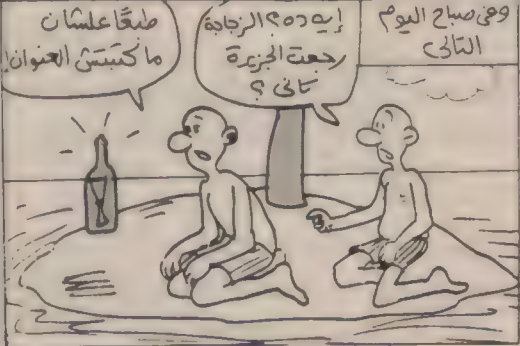 وفى صباح اليوم
التالى
إيه ده؟ الزجاجة
رجعت الجزيرة
تانى؟
طبعًا علشان
ما كتبتش العنوان!